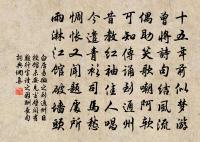 十五年前似夢游
曾將詩句結風流
偶助笑歌嘲阿軟
可知傳誦到通州
昔教紅袖佳人唱
今遣青衫司馬愁
惆悵又聞題處所
雨淋江館破墻頭
白居易微之到通州日
授館未安見塵壁間有
數行字讀之